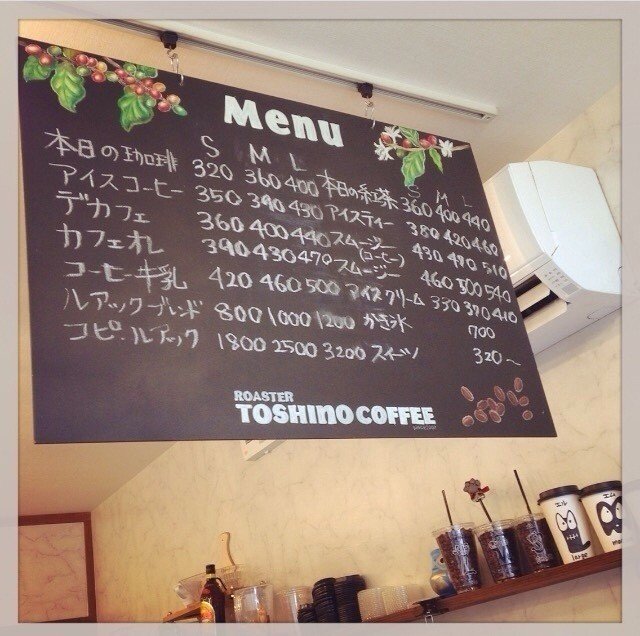 Menu
S M L
本日の珈琲 320 360 400
アイスコーヒー 350 390 430
デカフェ 360 400 440
カフェオレ 390 430 470
コーヒー牛乳 420 460 500
ルアックブレンド 800 1000 1200
コピ・ルアック 1800 2500 3200
S M L
本日の紅茶 360 400 440
アイスティー 380 420 460
スムージー(コーヒー) 430 470 510
スムージー 460 500 540
アイスクリーム 330 370 410
かき氷 700
スイーツ 320〜
ROASTER
TOSHINO COFFEE
エル
large
エム